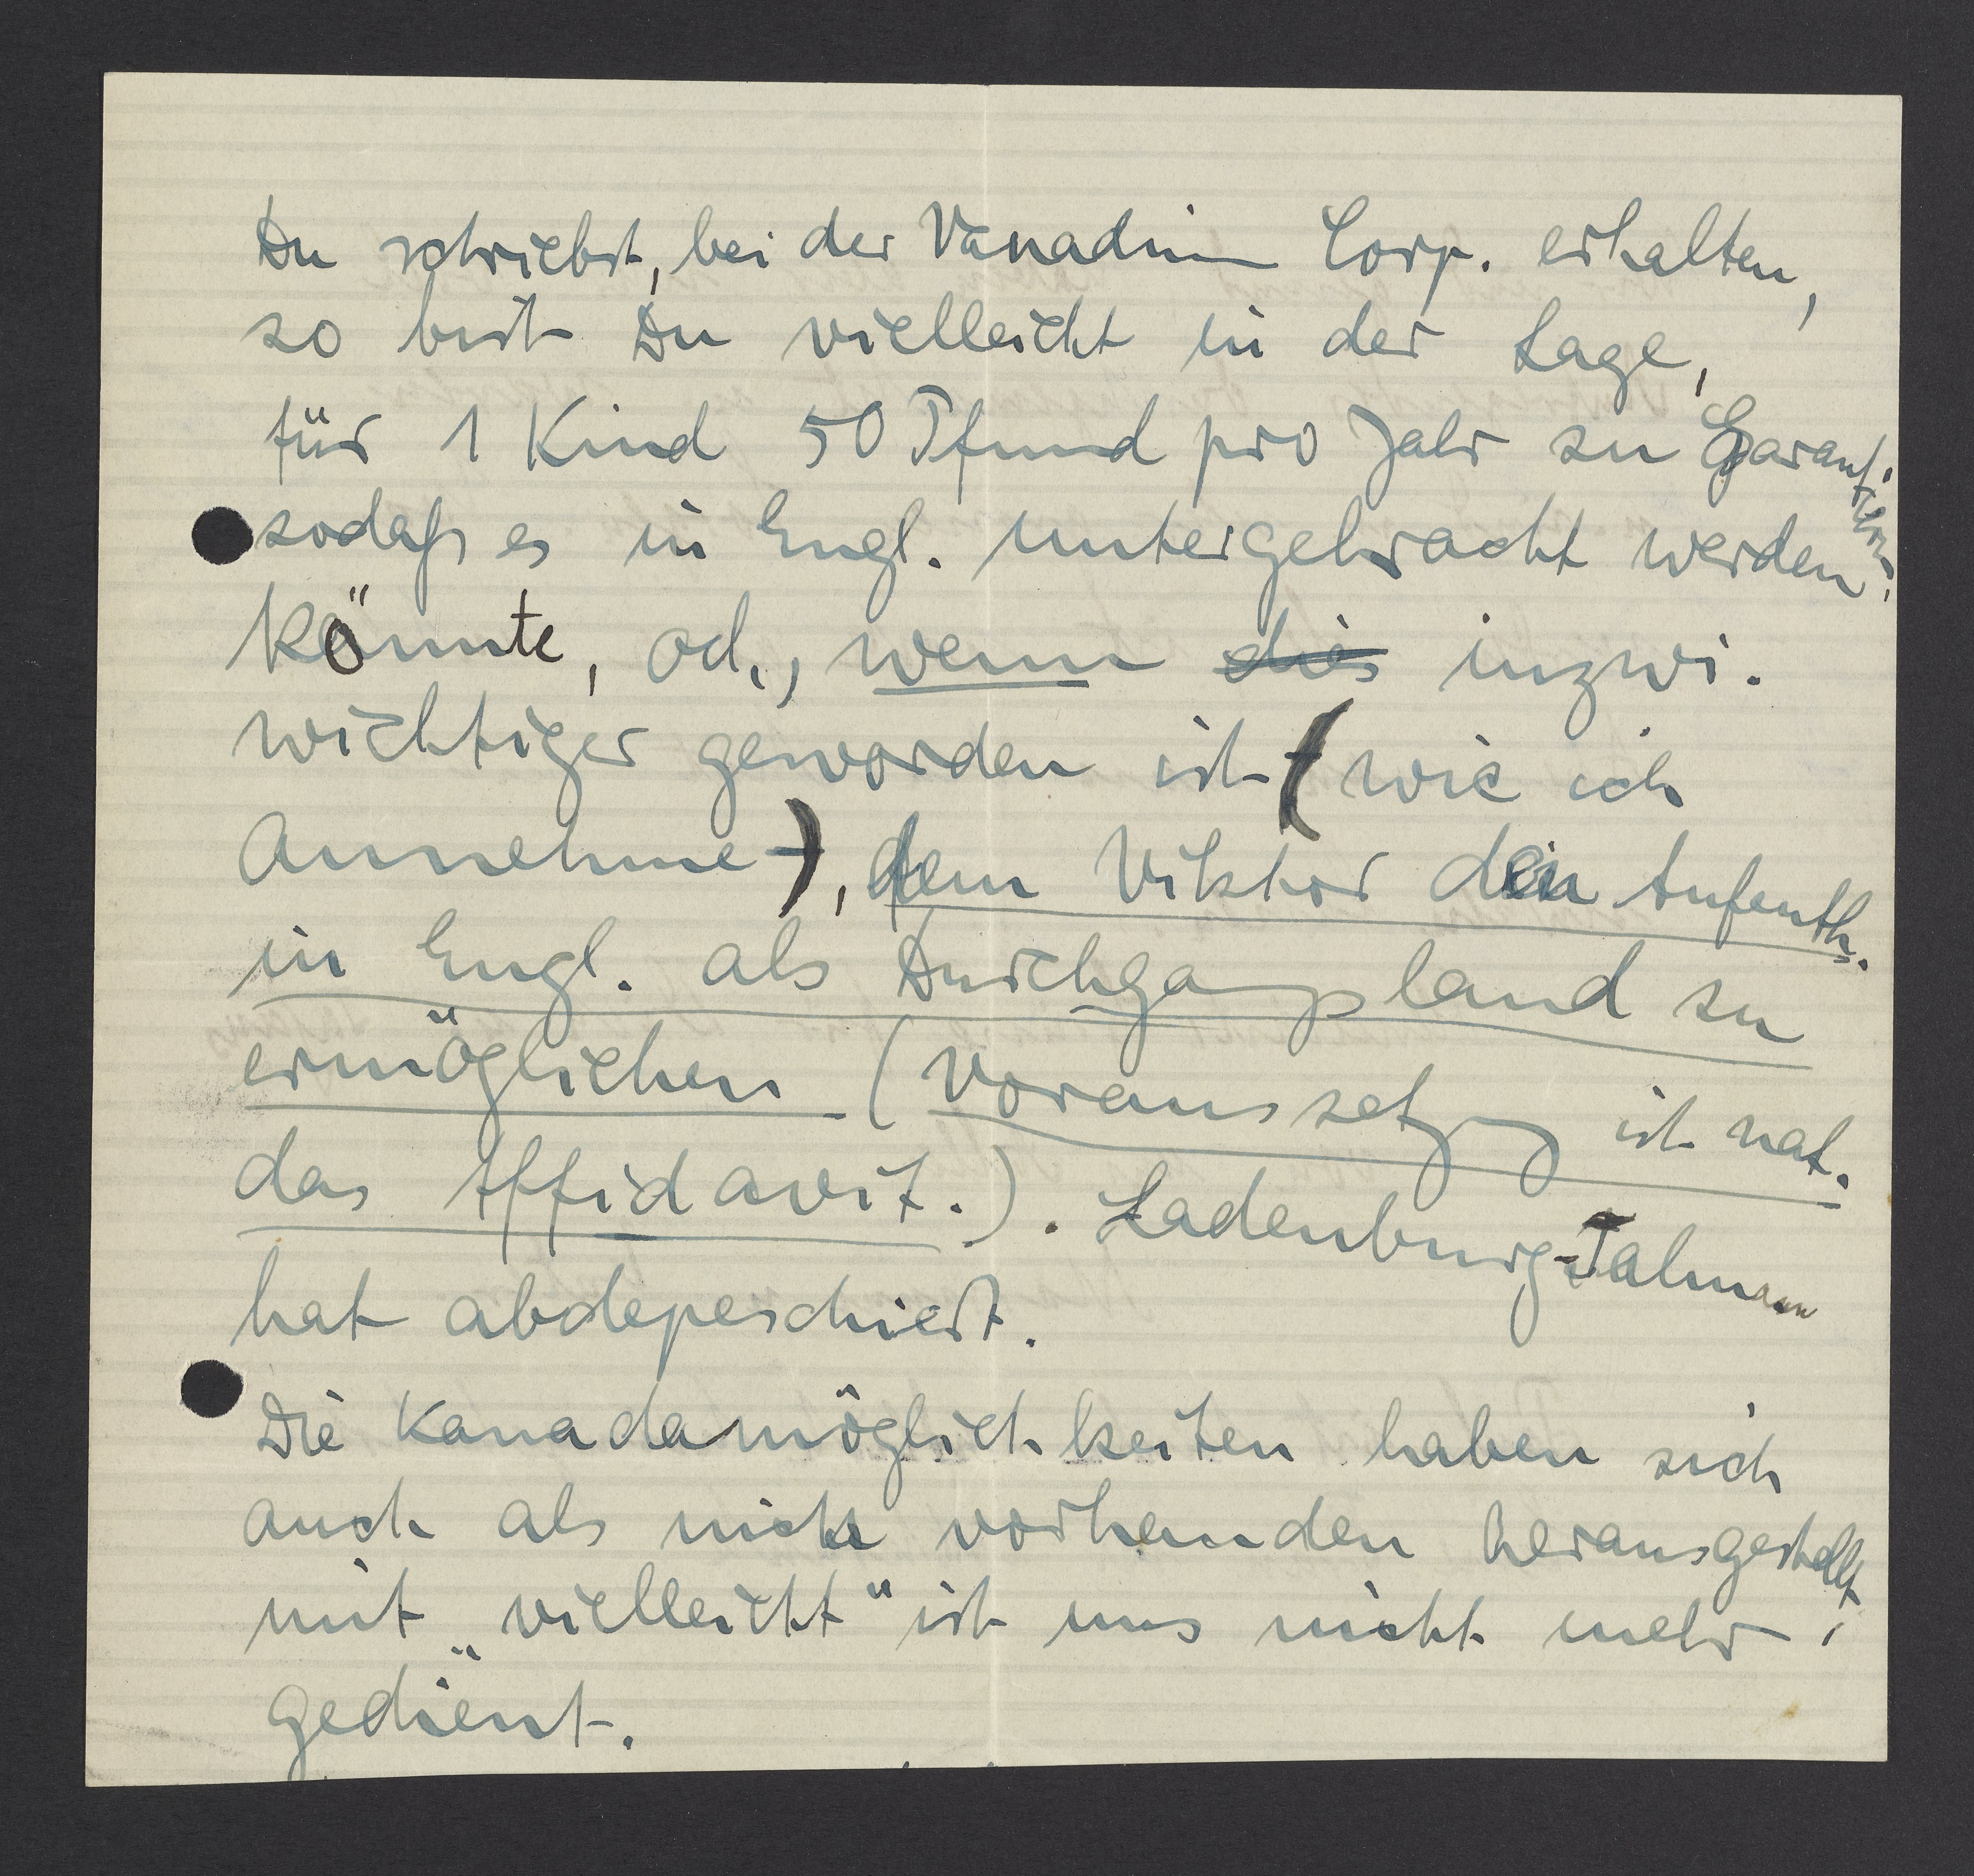 Du schriebst, bei der Vanadium Corp. erhalten,
so bist Du vielleicht in der Lage,
für 1 Kind 50 Pfund pro Jahr zu garantieren,
sodaß es in Engl. untergebracht werden
könnte, od., wenn dies inzwi.
wichtiger geworden ist (wie ich
annehme), dem Viktor den Aufenth.
in Engl. als Durchgangsland zu
ermöglichen (Voraussetzung ist nat.
das Affidavit.). Ladenburg-Talmann
hat abdepeschiert.
Die Kanadamöglichkeiten haben sich
auch als nicht vorhanden herausgestellt,
mit „vielleicht“ ist uns nicht mehr
gedient.